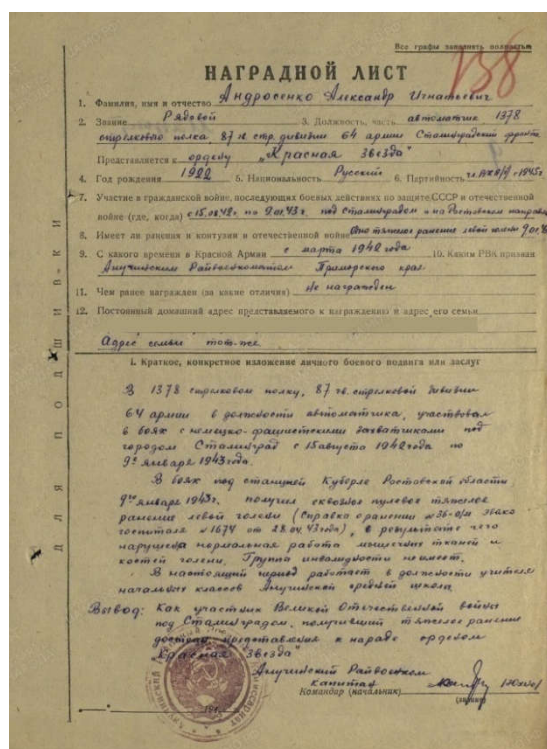 Все графы заполнять полностью
138
НАГРАДНОЙ ЛИСТ
1. Фамилия, имя и отчество Андросенко Александр Игнатьевич
2. Звание Рядовой 3. Должность, часть автоматчик 1378
стрелкового полка 87 гв. стр. дивизии 64 армии Сталинградский фронт
Представляется к ордену "Красная Звезда"
4. Год рождения 1922 5. Национальность Русский 6. Партийность 1945г
7. Участие в гражданской войне, последующих боевых действиях по защите СССР и отечественной
войне (где, когда) с 15.08.42г. по 9.01.43г. под Сталинградом и на Ростовском направл
8. Имеет ли ранения и контузии в отечественной войне Одно тяжелое ранение левой голени 9.01.43
9. С какого времени в Красной Армии с марта 1942 года 10. Каким РВК призван
Анучинским Райвоенкоматом Приморского края
11. Чем ранее награжден (за какие отличия) Не награжден
12. Постоянный домашний адрес представляемого к награждению и адрес его семьи
Адрес семьи тот-же
I. Краткое, конкретное изложение личного боевого подвига или заслуг
В 1378 стрелковом полку, 87 гв. стрелковой дивизии
64 армии в должности автоматчика, участвовал
в боях с немецко-фашистскими захватчиками под
городом Сталинград с 15 августа 1942 года по
9е января 1943 года.
В боях под станицей Куберле Ростовской области
9го января 1943г. получил сквозное пулевое тяжелое
ранение левой голени (Справка о ранении эвако
госпиталя №1674 от 28.04.43 года), в результате чего
нарушена нормальная работа мышечных тканей и
костей голени. Группа инвалидности не имеет.
В настоящий период работает в должности учителя
начальных классов Анучинской средней школы.
Вывод: Как участник Великой Отечественной войны
под Сталинградом, получивший тяжелое ранение
достоин представления к награде орденом
"Красная Звезда"
Анучинский Райвоенком
капитан
Командир (начальник)
(подпись)
194
ДЛЯ ПОДШИВКИ